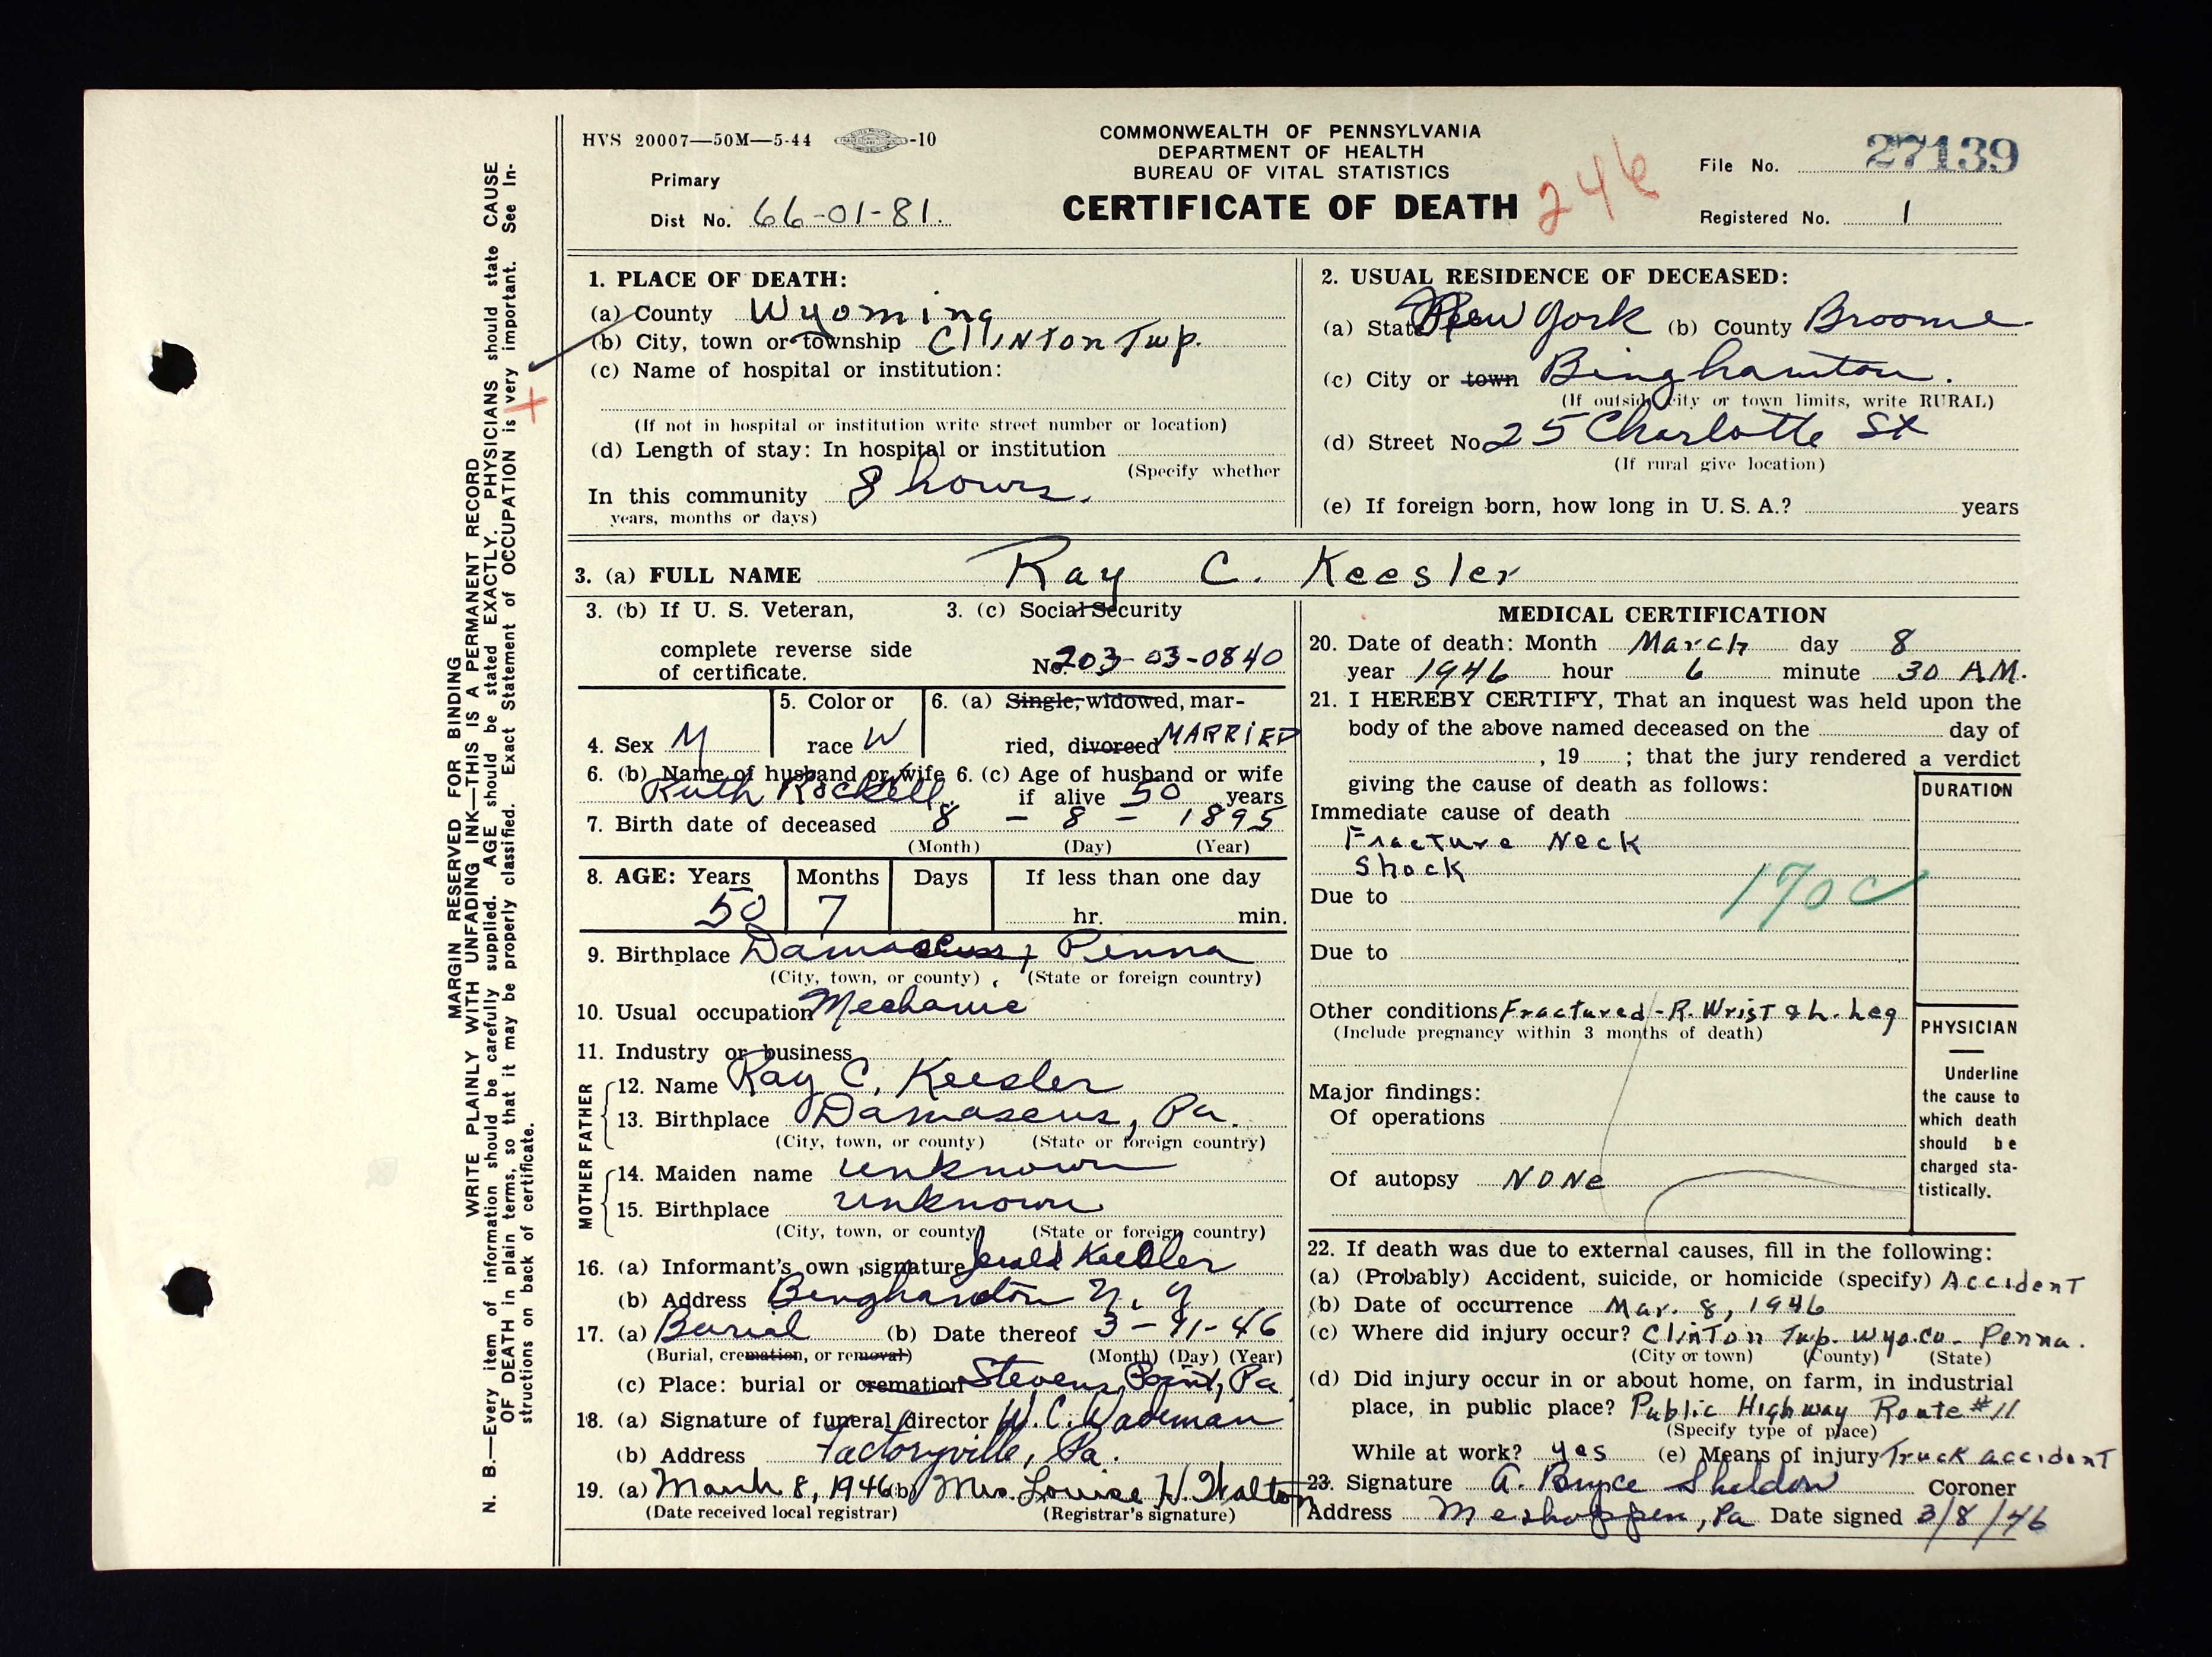 HVS 20007—50M—5-44 -10
COMMONWEALTH OF PENNSYLVANIA
DEPARTMENT OF HEALTH
BUREAU OF VITAL STATISTICS
CERTIFICATE OF DEATH
246
Primary
Dist No. 66-01-81.
File No. 27139
Registered No. 1
MARGIN RESERVED FOR BINDING
WRITE PLAINLY WITH UNFADING INK—THIS IS A PERMANENT RECORD
N. B.—Every item of information should be carefully supplied. AGE should be stated EXACTLY. PHYSICIANS should state CAUSE
OF DEATH in plain terms, so that it may be properly classified. Exact Statement of OCCUPATION is very important. See In-
structions on back of certificate.
1. PLACE OF DEATH:
(a) County Wyoming
(b) City, town or township Clinton Twp.
(c) Name of hospital or institution:
(If not in hospital or institution write street number or location)
(d) Length of stay: In hospital or institution
(Specify whether
In this community 8 hours.
years, months or days)
2. USUAL RESIDENCE OF DECEASED:
(a) State New York (b) County Broome
(c) City or town Binghamton.
(If outside city or town limits, write RURAL)
(d) Street No. 25 Charlotte St
(If rural give location)
(e) If foreign born, how long in U. S. A.? years
3. (a) FULL NAME Ray C. Keesler
3. (b) If U. S. Veteran,
complete reverse side
of certificate.
3. (c) Social Security
No. 203-03-0840
4. Sex M
5. Color or
race W
6. (a) Single, widowed, mar-
ried, divorced MARRIED
6. (b) Name of husband or wife 6. (c) Age of husband or wife
Ruth Rockwell if alive 50 years
7. Birth date of deceased 8 - 8 - 1895
(Month) (Day) (Year)
8. AGE: Years Months Days If less than one day
50 7 hr. min.
9. Birthplace Damascus, Penna
(City, town, or county) (State or foreign country)
10. Usual occupation Mechanic
11. Industry or business
FATHER
12. Name Ray C. Keesler
13. Birthplace Damascus, Pa.
(City, town, or county) (State or foreign country)
MOTHER
14. Maiden name unknown
15. Birthplace unknown
(City, town, or county) (State or foreign country)
16. (a) Informant's own signature Jerald Keesler
(b) Address Binghamton N. Y
17. (a) Burial (b) Date thereof 3-11-46
(Burial, cremation, or removal) (Month) (Day) (Year)
(c) Place: burial or cremation Stevens Point, Pa
18. (a) Signature of funeral director W. C. Wademan
(b) Address Factoryville, Pa.
19. (a) March 8, 1946 (b) Mrs. Louise H. Walton
(Date received local registrar) (Registrar's signature)
MEDICAL CERTIFICATION
20. Date of death: Month March day 8
year 1946 hour 6 minute 30 A.M.
21. I HEREBY CERTIFY, That an inquest was held upon the
body of the above named deceased on the day of
, 19 ; that the jury rendered a verdict
giving the cause of death as follows:
DURATION
Immediate cause of death
Fracture Neck
Shock
Due to 170c
Due to
Other conditions Fractured - R. Wrist & L. Leg
(Include pregnancy within 3 months of death)
Major findings:
Of operations
Of autopsy NONe
PHYSICIAN
Underline
the cause to
which death
should be
charged sta-
tistically.
22. If death was due to external causes, fill in the following:
(a) (Probably) Accident, suicide, or homicide (specify) Accident
(b) Date of occurrence Mar. 8, 1946
(c) Where did injury occur? Clinton Twp. Wyo.co. Penna.
(City or town) (County) (State)
(d) Did injury occur in or about home, on farm, in industrial
place, in public place? Public Highway Route #11
(Specify type of place)
While at work? yes (e) Means of injury Truck accident
23. Signature A. Bryce Sheldon Coroner
Address Meshoppen, Pa Date signed 3/8/46